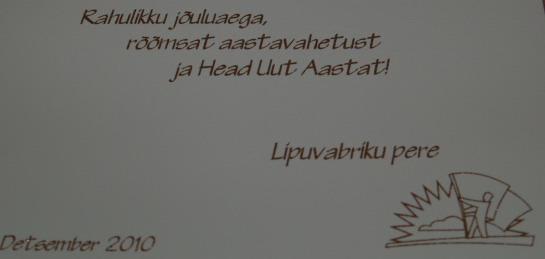 Rahulikku jõuluaega,
rõõmsat aastavahetust
ja Head Uut Aastat!
Lipuvabriku pere
Detsember 2010